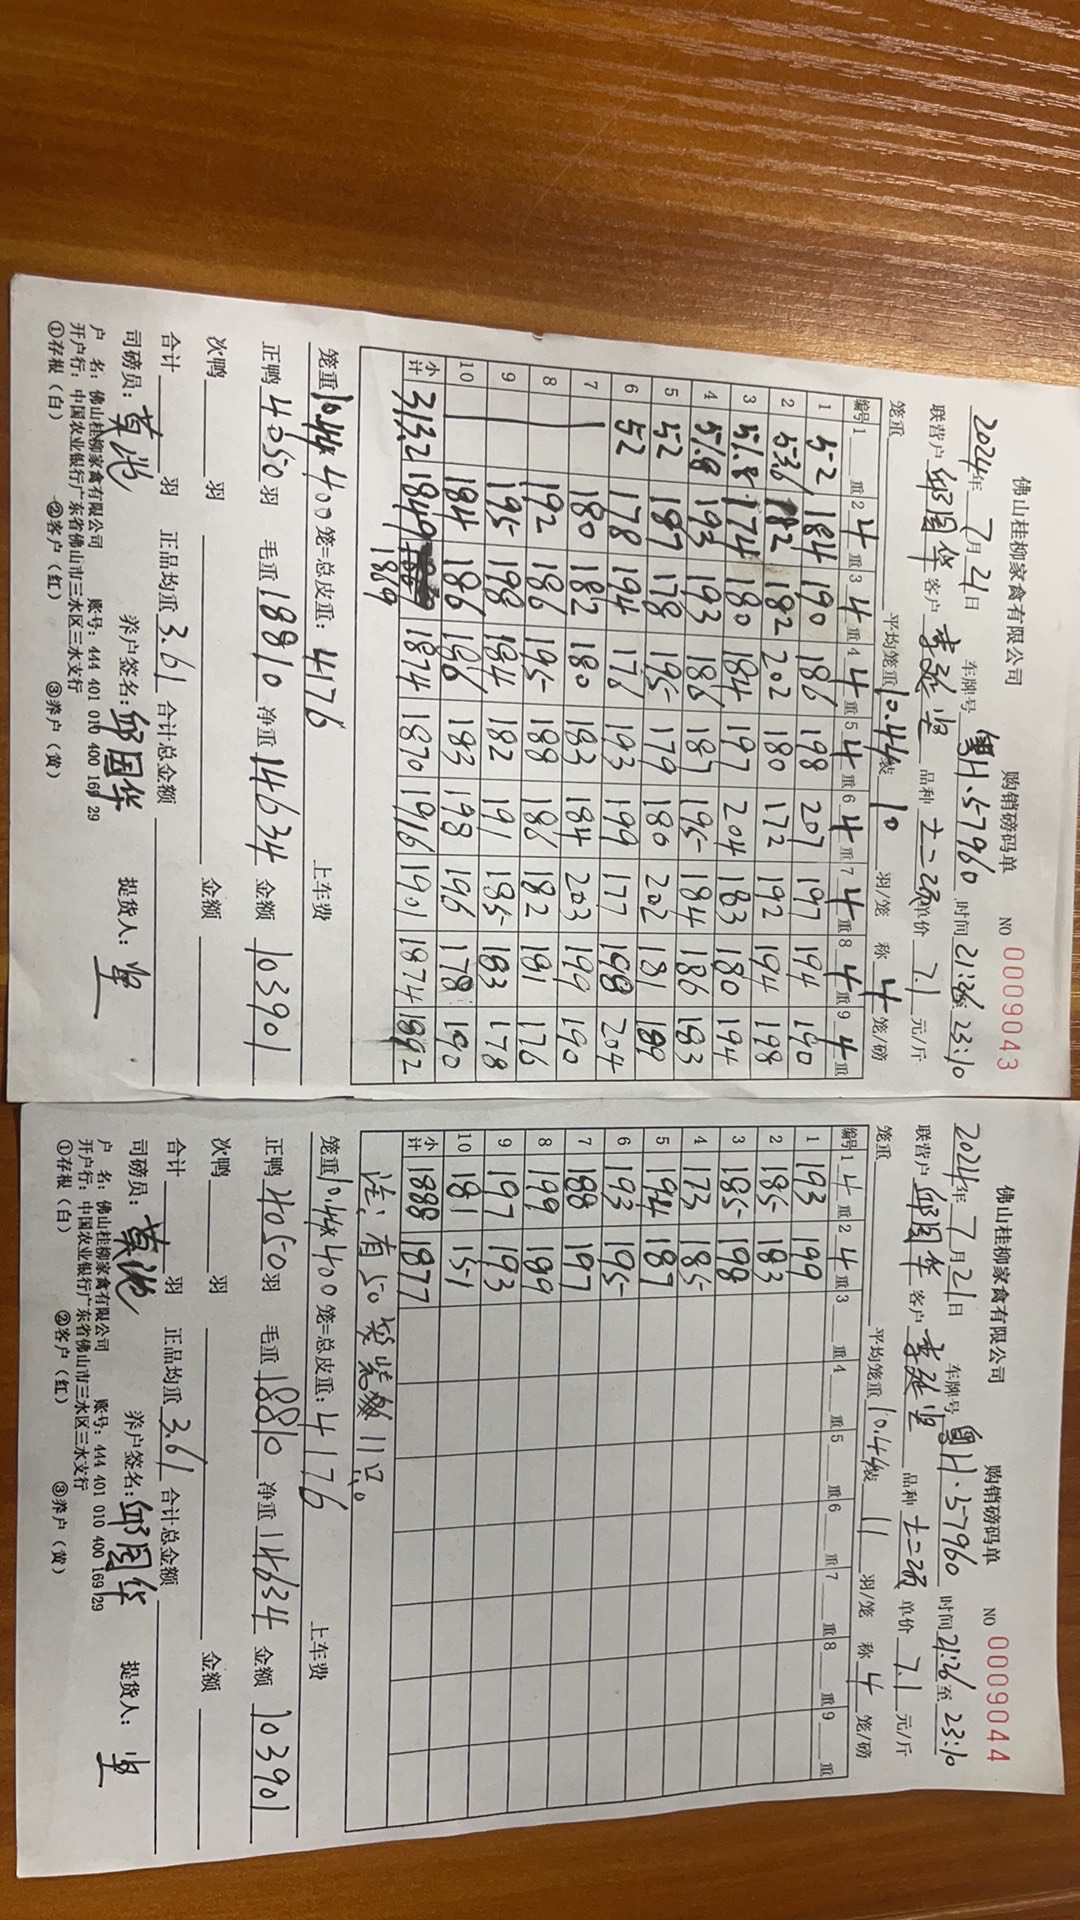 佛山桂柳家禽有限公司 购销磅码单 NO 0009043
2024年 7月21日 车牌号 粤H·57960 时间 21:26至 23:10
联营户 邱国华 客户 李延坚 品种 土二 单价 7.1 元/斤
笼重 平均笼重 10.44 装 10 羽/笼 称 4 笼/磅
编号 1 重 2 4 重 3 4 重 4 4 重 5 4 重 6 4 重 7 4 重 8 4 重 9 4 重
1 52 184 190 186 198 207 197 194 190
2 53.6 182 182 202 180 172 192 194 198
3 51.8 174 180 184 197 204 183 180 194
4 51.8 193 193 186 187 195 184 186 183
5 52 187 178 195 179 180 202 181 189
6 52 178 194 176 193 199 177 198 204
7 180 182 180 183 184 203 199 190
8 192 186 195 188 186 182 191 176
9 195 198 194 182 191 185 183 178
10 184 186 196 183 198 196 178 190
小计 313.2 1849 1869 1874 1870 1916 1901 1874 1892
笼重 10.44×400 笼=总皮重: 4176 上车费
正鸭 4050 羽 毛重 18810 净重 14634 金额 103901
次鸭 羽 金额
合计 羽 正品均重 3.61 合计总金额
司磅员: 莫池 养户签名: 邱国华 提货人: 坚
户 名: 佛山桂柳家禽有限公司 账号: 444 401 010 400 169 29
开户行: 中国农业银行广东省佛山市三水区三水支行
①存根(白) ②客户(红) ③养户(黄)
佛山桂柳家禽有限公司 购销磅码单 NO 0009044
2024年 7月21日 车牌号 粤H·57960 时间 21:26至 23:10
联营户 邱国华 客户 李延坚 品种 土二 单价 7.1 元/斤
笼重 平均笼重 10.44 装 11 羽/笼 称 4 笼/磅
编号 1 4 重 2 4 重 3 重 4 重 5 重 6 重 7 重 8 重 9 重
1 193 199
2 185 183
3 185 198
4 173 185
5 194 187
6 193 195
7 188 197
8 199 199
9 197 193
10 181 151
小计 1888 1877
注: 有50 装 11只
笼重 10.44×400 笼=总皮重: 4176 上车费
正鸭 4050 羽 毛重 18810 净重 14634 金额 103901
次鸭 羽 金额
合计 羽 正品均重 3.61 合计总金额
司磅员: 莫池 养户签名: 邱国华 提货人: 坚
户 名: 佛山桂柳家禽有限公司 账号: 444 401 010 400 169 29
开户行: 中国农业银行广东省佛山市三水区三水支行
①存根(白) ②客户(红) ③养户(黄)